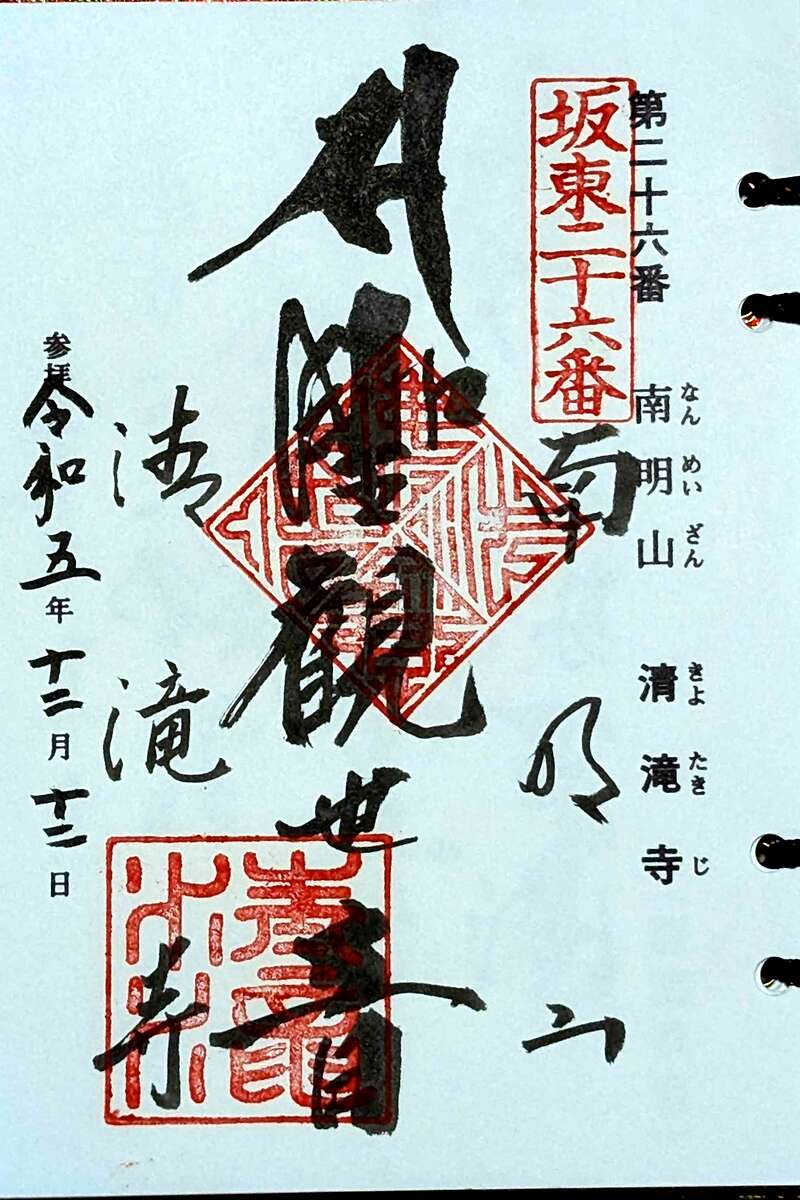 なんめいざん きよたきじ
第二十六番 南明山 清滝寺
坂東二十六番
南明山
聖觀世音
清滝寺
参拝 令和五年十二月十二日